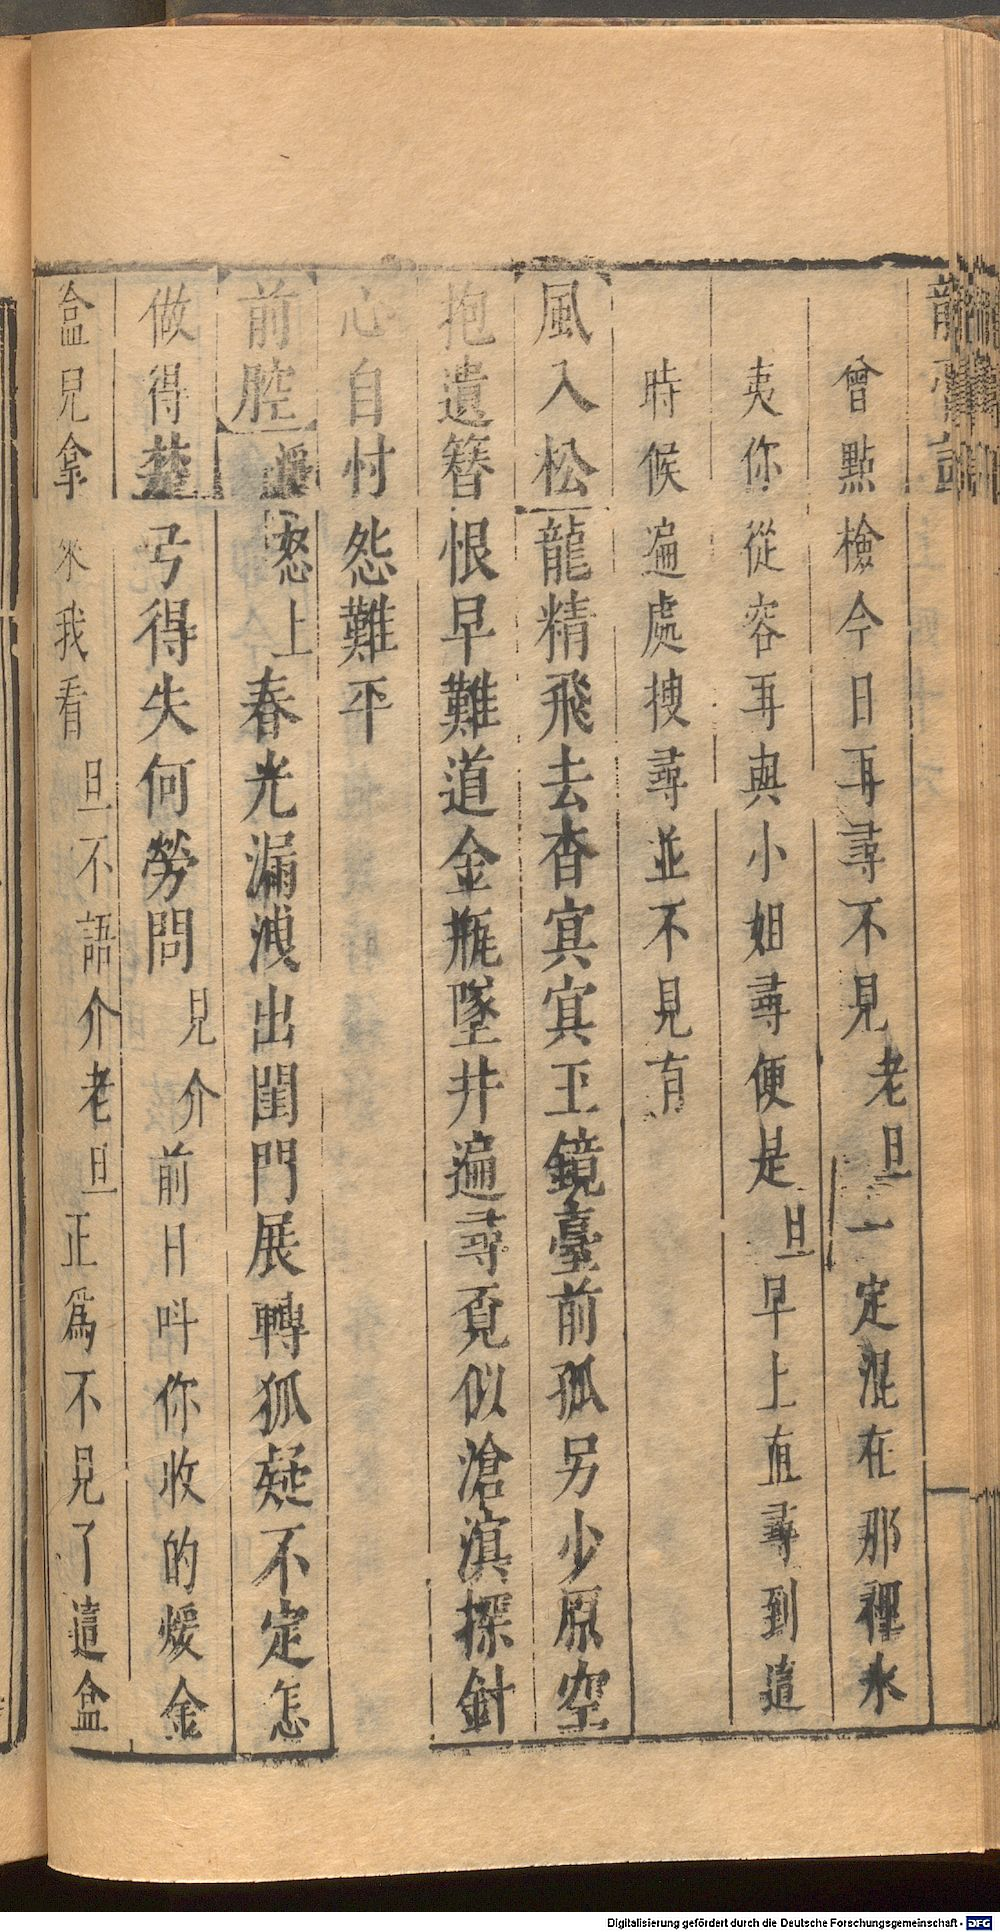 龍膏記
曾點檢今日再尋不見老旦一定混在那裡水
夷你從容再與小姐尋便是旦早上直尋到這
時候遍處搜尋並不見有
風入松龍精飛去杳冥冥玉鏡臺前孤另少原空
抱遺簪恨早難道金瓶墜井遍尋覓似滄溟探針
心自忖怨難平
前腔怒上春光漏洩出閨門展轉狐疑不定怎
做得楚弓得失何勞問見介前日呌你收的煖金
盒兒拿來我看旦不語介老旦正爲不見了這盒
Digitalisierung gefördert durch die Deutsche Forschungsgemeinschaft - DFG